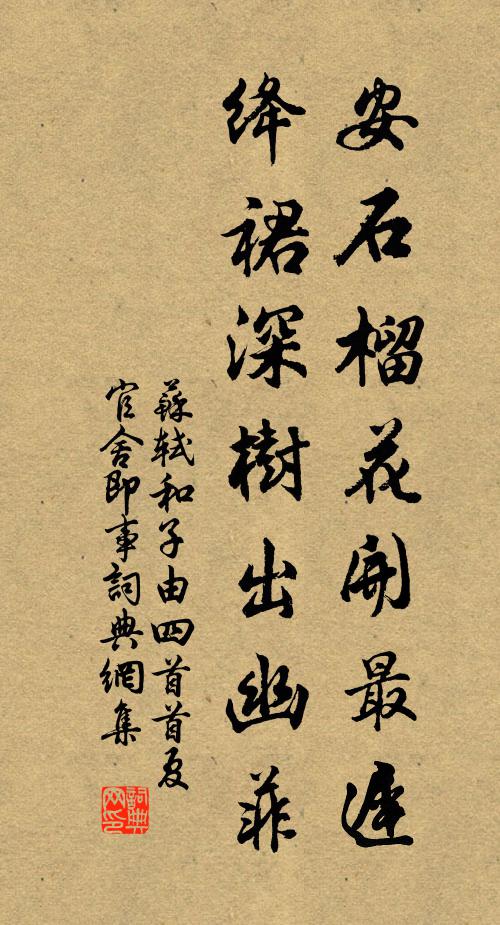 安石榴花開最遲
絳裙深樹出幽菲
蘇軾和子由四首首夏
官舍即事詞典網集
詞典网印